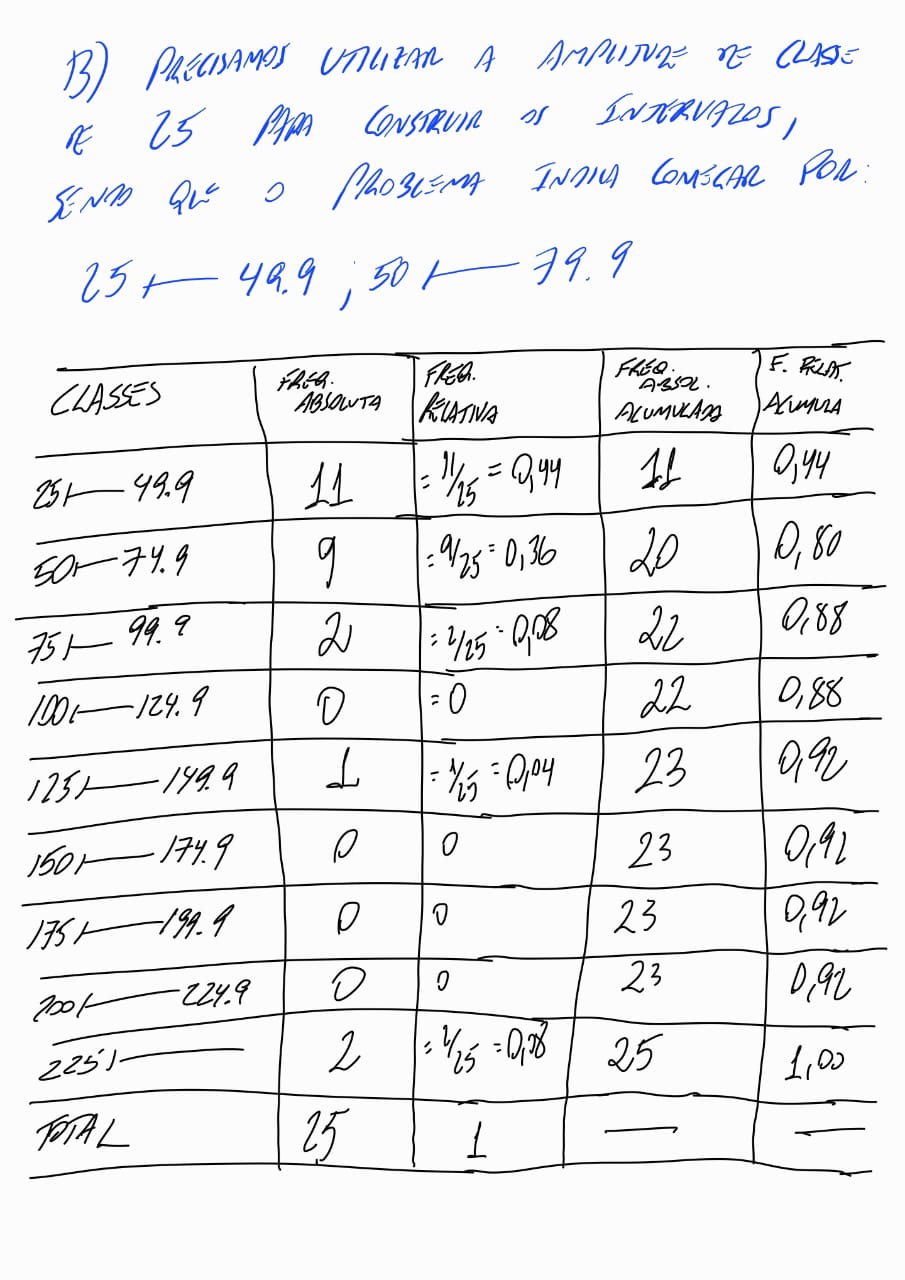 B) PRECISAMOS UTILIZAR A AMPLITUDE DE CLASSE
DE 25 PARA CONSTRUIR OS INTERVALOS,
SENDO QUE O PROBLEMA INDICA COMEÇAR POR:
25 ⊢ 49.9 ; 50 ⊢ 79.9
CLASSES FREQ. ABSOLUTA FREQ. RELATIVA FREQ. ABSOL. ACUMULADA F. RELAT. ACUMULA
25 ⊢ 49.9 11 = 11/25 = 0,44 11 0,44
50 ⊢ 74.9 9 = 9/25 = 0,36 20 0,80
75 ⊢ 99.9 2 = 2/25 = 0,08 22 0,88
100 ⊢ 124.9 0 = 0 22 0,88
125 ⊢ 149.9 1 = 1/25 = 0,04 23 0,92
150 ⊢ 174.9 0 0 23 0,92
175 ⊢ 199.9 0 0 23 0,92
200 ⊢ 224.9 0 0 23 0,92
225 ⊢ 2 = 2/25 = 0,08 25 1,00
TOTAL 25 1 — —